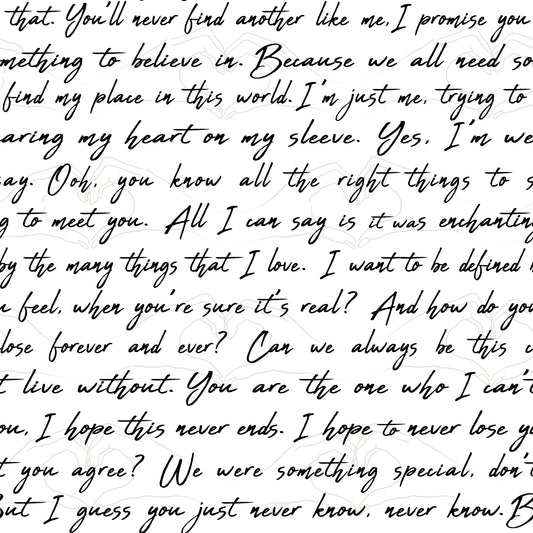 that. You'll never find another like me, I promise you
mething to believe in. Because we all need so
find my place in this world. I'm just me, trying to
aring my heart on my sleeve. Yes, I'm we
say. Ooh, you know all the right things to s
g to meet you. All I can say is it was enchanting
by the many things that I love. I want to be defined
u feel, when you're sure it's real? And how do you
lose forever and ever? Can we always be this c
t live without. You are the one who I can't
ou, I hope this never ends. I hope to never lose y
t you agree? We were something special, don't
But I guess you just never know, never know. B